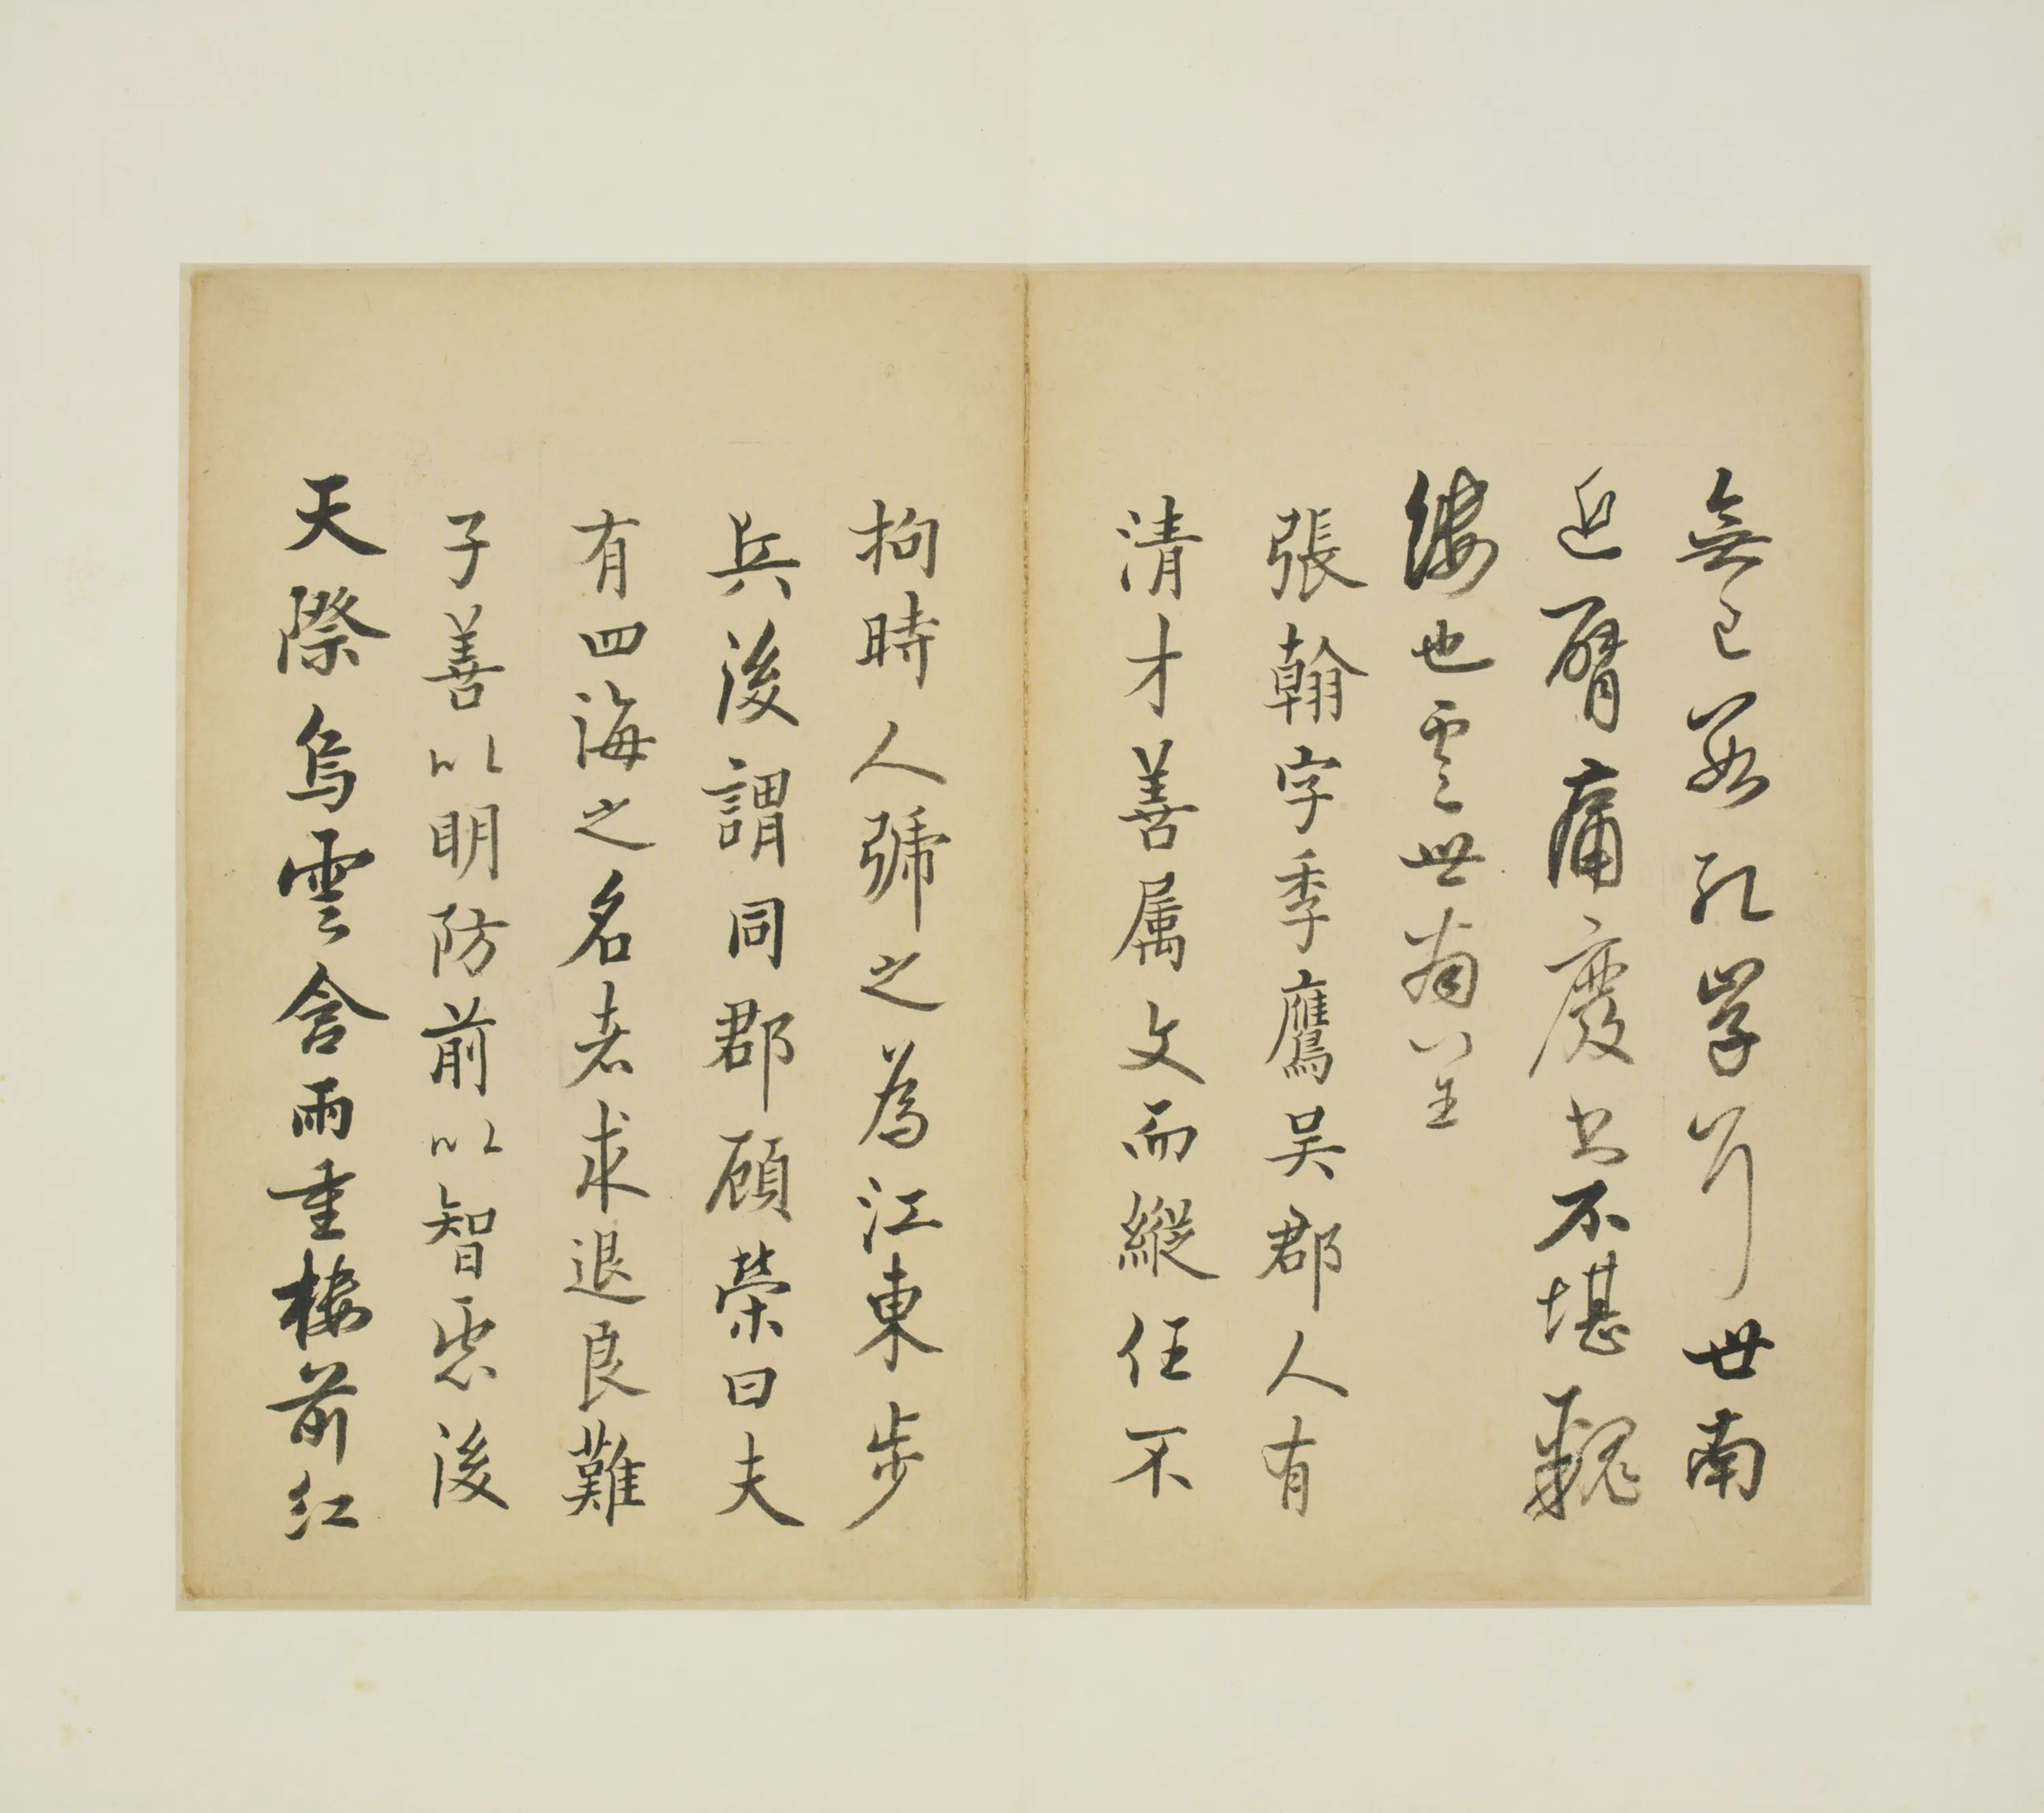 無已學世南
近臂痛廢書不堪覼
縷也虞世南咨呈
張翰字季鷹吳郡人有
清才善属文而縱任不
拘時人號之為江東步
兵後謂同郡顧榮曰夫
有四海之名者求退良難
子善以明防前以智慮後
天際烏雲含雨重樓前紅